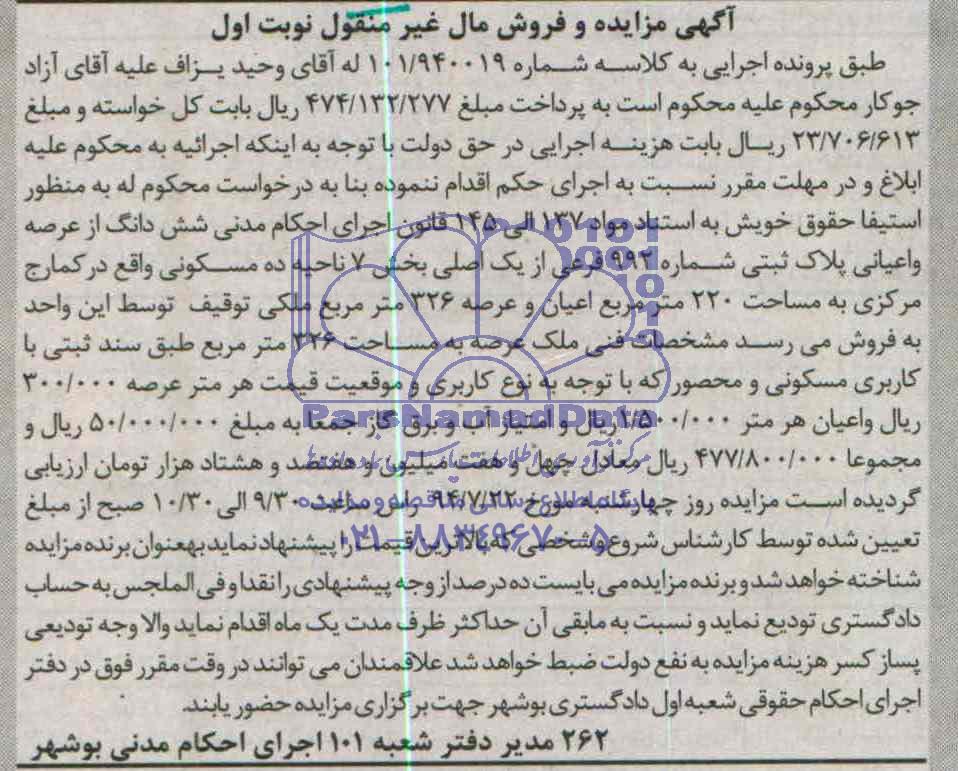 آگهی مزایده و فروش مال غیر منقول نوبت اول
طبق پرونده اجرایی به کلاسه شماره ۱۰۱/۹۴۰۰۱۹ له آقای وحید یزاف علیه آقای آزاد
جوکار محکوم علیه محکوم است به پرداخت مبلغ ۴۷۴/۱۳۲/۲۷۷ ریال بابت کل خواسته و مبلغ
۲۳/۷۰۶/۶۱۳ ریال بابت هزینه اجرایی در حق دولت با توجه به اینکه اجرائیه به محکوم علیه
ابلاغ و در مهلت مقرر نسبت به اجرای حکم اقدام ننموده بنا به درخواست محکوم له به منظور
استیفا حقوق خویش به استناد مواد ۱۳۷ الی ۱۴۵ قانون اجرای احکام مدنی شش دانگ از عرصه
واعیانی پلاک ثبتی شماره ۹۹۲ فرعی از یک اصلی بخش ۷ ناحیه ده مسکونی واقع در کمارج
مرکزی به مساحت ۲۲۰ متر مربع اعیان و عرصه ۳۲۶ متر مربع ملکی توقیف توسط این واحد
به فروش می رسد مشخصات فنی ملک عرصه به مساحت ۳۲۶ متر مربع طبق سند ثبتی با
کاربری مسکونی و محصور که با توجه به نوع کاربری و موقعیت قیمت هر متر عرصه ۳۰۰/۰۰۰
ریال واعیان هر متر ۱/۵۰۰/۰۰۰ ریال و امتیاز آب و برق گاز جمعا به مبلغ ۵۰/۰۰۰/۰۰۰ ریال و
مجموعا ۴۷۷/۸۰۰/۰۰۰ ریال معادل چهل و هفت میلیون و هفتصد و هشتاد هزار تومان ارزیابی
گردیده است مزایده روز چهارشنبه مورخ ۹۴/۷/۲۲ راس ساعت ۹/۳۰ الی ۱۰/۳۰ صبح از مبلغ
تعیین شده توسط کارشناس شروع وشخصی که بالاترین قیمت را پیشنهاد نماید بهعنوان برنده مزایده
شناخته خواهد شد و برنده مزایده می بایست ده درصد از وجه پیشنهادی را نقدا و فی الملجس به حساب
دادگستری تودیع نماید و نسبت به مابقی آن حداکثر ظرف مدت یک ماه اقدام نماید والا وجه تودیعی
پساز کسر هزینه مزایده به نفع دولت ضبط خواهد شد علاقمندان می توانند در وقت مقرر فوق در دفتر
اجرای احکام حقوقی شعبه اول دادگستری بوشهر جهت برگزاری مزایده حضور یابند.
۲۶۲ مدیر دفتر شعبه ۱۰۱ اجرای احکام مدنی بوشهر
ParsNamadData
۰۲۱-۸۸۳۴۹۶۷۰-۵